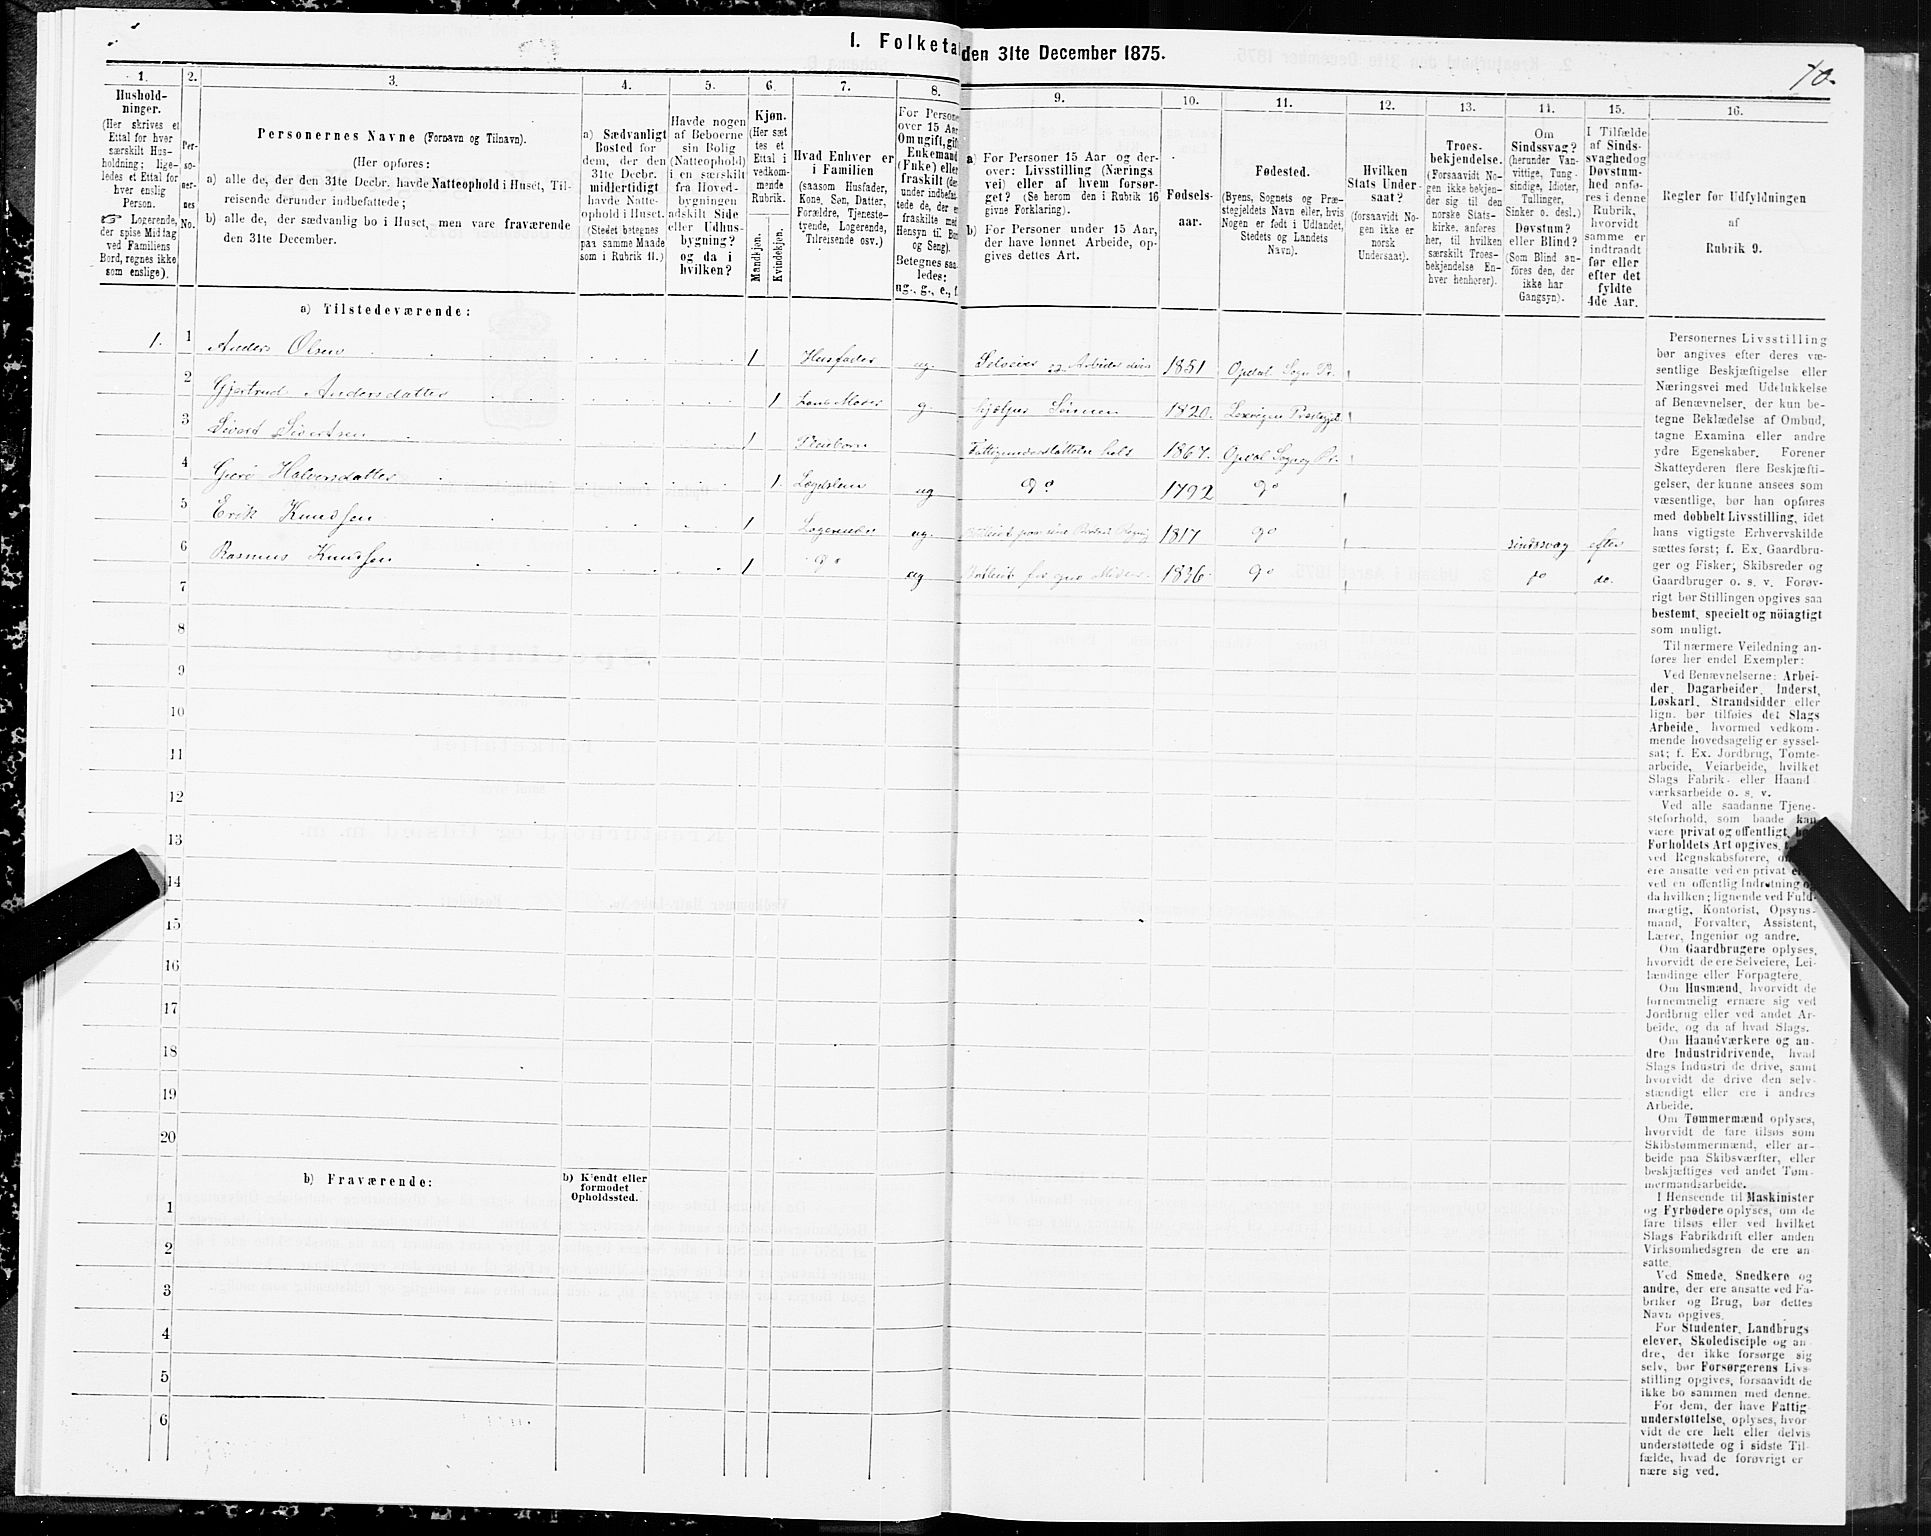 1. Folketal den 31te December 1875.
70.
1. 2. 3. 4. 5. 6. 7. 8. 9. 10. 11. 12. 13. 14. 15. 16.
Hushold-
ninger.
(Her skrives et
Ettal for hver
særskilt Hus-
holdning; lige-
ledes et Ettal for
hver enslig
Person.
☞ Logerende,
der spise Middag
ved Familiens
Bord, regnes ikke
som enslige).
Per-
so-
ner-
nes
No.
Personernes Navne (Fornavn og Tilnavn).
(Her opføres:
a) alle de, der den 31te Decbr. havde Natteophold i Huset, Til-
reisende derunder indbefattede;
b) alle de, der sædvanlig bo i Huset, men vare fraværende
den 31te December.
a) Sædvanligt
Bosted for
dem, der den
31te Decbr.
midlertidigt
havde Natte-
ophold i Huset.
(Stedet betegnes
paa samme Maade
som i Rubrik 11.)
Havde nogen
af Beboerne
sin Bolig
(Natteophold)
i en særskilt
fra Hoved-
bygningen
adskilt Side
eller Udhus-
bygning?
og da i
hvilken?
Kjøn.
(Her sæt
tes et
Ettal i
vedkom-
mende
Rubrik.
Mandkjøn.
Kvindekjøn.
Hvad Enhver er
i Familien
(saasom Husfader,
Kone, Søn, Datter,
Forældre, Tjeneste-
tyende, Logerende,
Tilreisende osv.)
For Persone
over 15 Aar
Om ugift, gift
Enkemand
(Enke) eller
fraskilt (der-
under indbefat-
tede de, der er
fraskilte med
Hensyn til Bo
og Seng).
Betegnes saa-
ledes:
ug., g., e., f.
a) For Personer 15 Aar og der-
over: Livsstilling (Nærings
vei) eller af hvem forsør-
get? (Se herom den i Rubrik 16
givne Forklaring).
b) For Personer under 15 Aar,
der have lønnet Arbeide, op-
gives dettes Art.
Fødsels-
aar.
Fødested.
(Byens, Sognets og Præ-
stegjeldets Navn eller, hvis
Nogen er født i Udlandet,
Stedets og Landets
Navn).
Hvilken
Stats Under-
saat?
(forsaavidt No-
gen ikke er
norsk
Undersaat).
Troes-
bekjendelse.
(Forsaavidt No-
gen ikke bekjen-
der sig til den
norske Stats-
kirke, anføres
her, til hvilken
særskilt Troes-
bekjendelse En-
hver henhører).
Om
Sindssvag?
(herunder Van-
vittige, Tung-
sindige, Idioter,
Sinker o. desl.)
Døvstum?
eller Blind?
(Som Blind an-
føres den, der
ikke har
Gangsyn).
I Tilfælde
af Sinds-
svaghed og
Døvstum-
hed anfø-
res i denne
Rubrik,
hvorvidt
samme er
indtraadt
før eller
efter det
fyldte
4de Aar.
Regler for Udfyldningen
af
Rubrik 9.
a) Tilstedeværende:
1. 1 Anders Olsen 1 Husfader ug. Selveier og Arbeider 1851 Opdal Sogn Pr.
2 Gjertrud Andersdatter 1 Moder g. hjælper Sønnen 1820.
3 Sivert Sivertsen 1 Pleiebarn Fattigunderstøttelse helt 1867. Opdal Sogn og Pr.
4 Halvorsdatter 1. Lægdslem ug do 1792 do
5 Erik Knudsen 1 Logerende ug. 1817 do sindssvag efter
6 Rasmus Knudsen 1 do ug 1836 do do do.
7
8
9
10
11
12
13
14
15
16
17
18
19
20
b) Fraværende:
b) Kjendt eller
formodet
Opholdssted.
1
2
3
4
5
6
Personernes Livsstilling
bør angives efter deres væ-
sentlige Beskjæftigelse eller
Næringsvei med Udelukkelse
af Benævnelser, der kun be-
tegne Beklædelse af Ombud,
tagne Examina eller andre
ydre Egenskaber. Forener
Skatteyderen flere Beskjæfti-
gelser, der kunne ansees som
væsentlige, bør han opføres
med dobbelt Livsstilling, idet
hans vigtigste Erhvervskilde
sættes først; f. Ex. Gaardbru-
ger og Fisker; Skibsreder og
Gaardbruger o. s. v. Forøv-
rigt bør Stillingen opgives saa
bestemt, specielt og nöiagtigt
som muligt.
Til nærmere Veiledning an-
føres her endel Exempler:
Ved Benævnelserne: Arbei-
der, Dagarbeider, Inderst,
Løskarl, Strandsidder eller
lign. bør tilføies det Slags
Arbeide, hvormed vedkom-
mende hovedsagelig er syssel-
sat; f. Ex. Jordbrug, Tomte-
arbeide, Veiarbeide, hvilket
Slags Fabrik- eller Haand
værksarbeide o. s. v.
Ved alle saadanne Tjene-
steforhold, som baade kan
være privat og offentligt, bør
Forholdets Art opgives,
ved Regnskabsførere, om
ere ansatte ved en privat
ved en offentlig Indretning
da hvilken; lignende ved Fuld-
mægtig, Kontorist, Opsyns-
mand, Forvalter, Assistent,
Lærer, Ingeniør og andre.
Om Gaardbrugere oplyses,
hvorvidt de ere Selveiere, Lei-
lændinge eller Forpagtere.
Om Husmænd, hvorvidt de
fornemmelig ernære sig ved
Jordbrug eller ved andet Ar-
beide, og da af hvad Slags.
Om Haandværkere og an-
dre Industridrivende, hvad
Slags Industri de drive, samt
hvorvidt de drive den selv-
stændigt eller ere i andres
Arbeide.
Om Tømmermænd oplyses,
hvorvidt de fare tilsøs som
Skibstømmermænd, eller ar-
beide paa Skibsværfter, eller
beskjæftiges ved andet Tøm-
mermandsarbeide.
I Henseende til Maskinister
og Fyrbødere oplyses, om de
fare tilsøs eller ved hvilket
Slags Fabrikdrift eller anden
Virksomhedsgren de ere an-
satte.
Ved Smede, Snedkere og
andre, der ere ansatte ved Fa-
briker og Brug, bør dettes
Navn opgives.
For Studenter, Landbrugs
elever, Skoledisciple og an-
dre, der ikke forsørge sig
selv, bør Forsørgerens Livs-
stilling opgives, forsaavidt de
ikke bo sammen med denne.
For dem, der have Fattig-
understøttelse, oplyses, hvor
vidt de ere helt eller delvis
understøttede og i sidste Til-
fælde, hvad de forøvrigt er
nære sig ved.